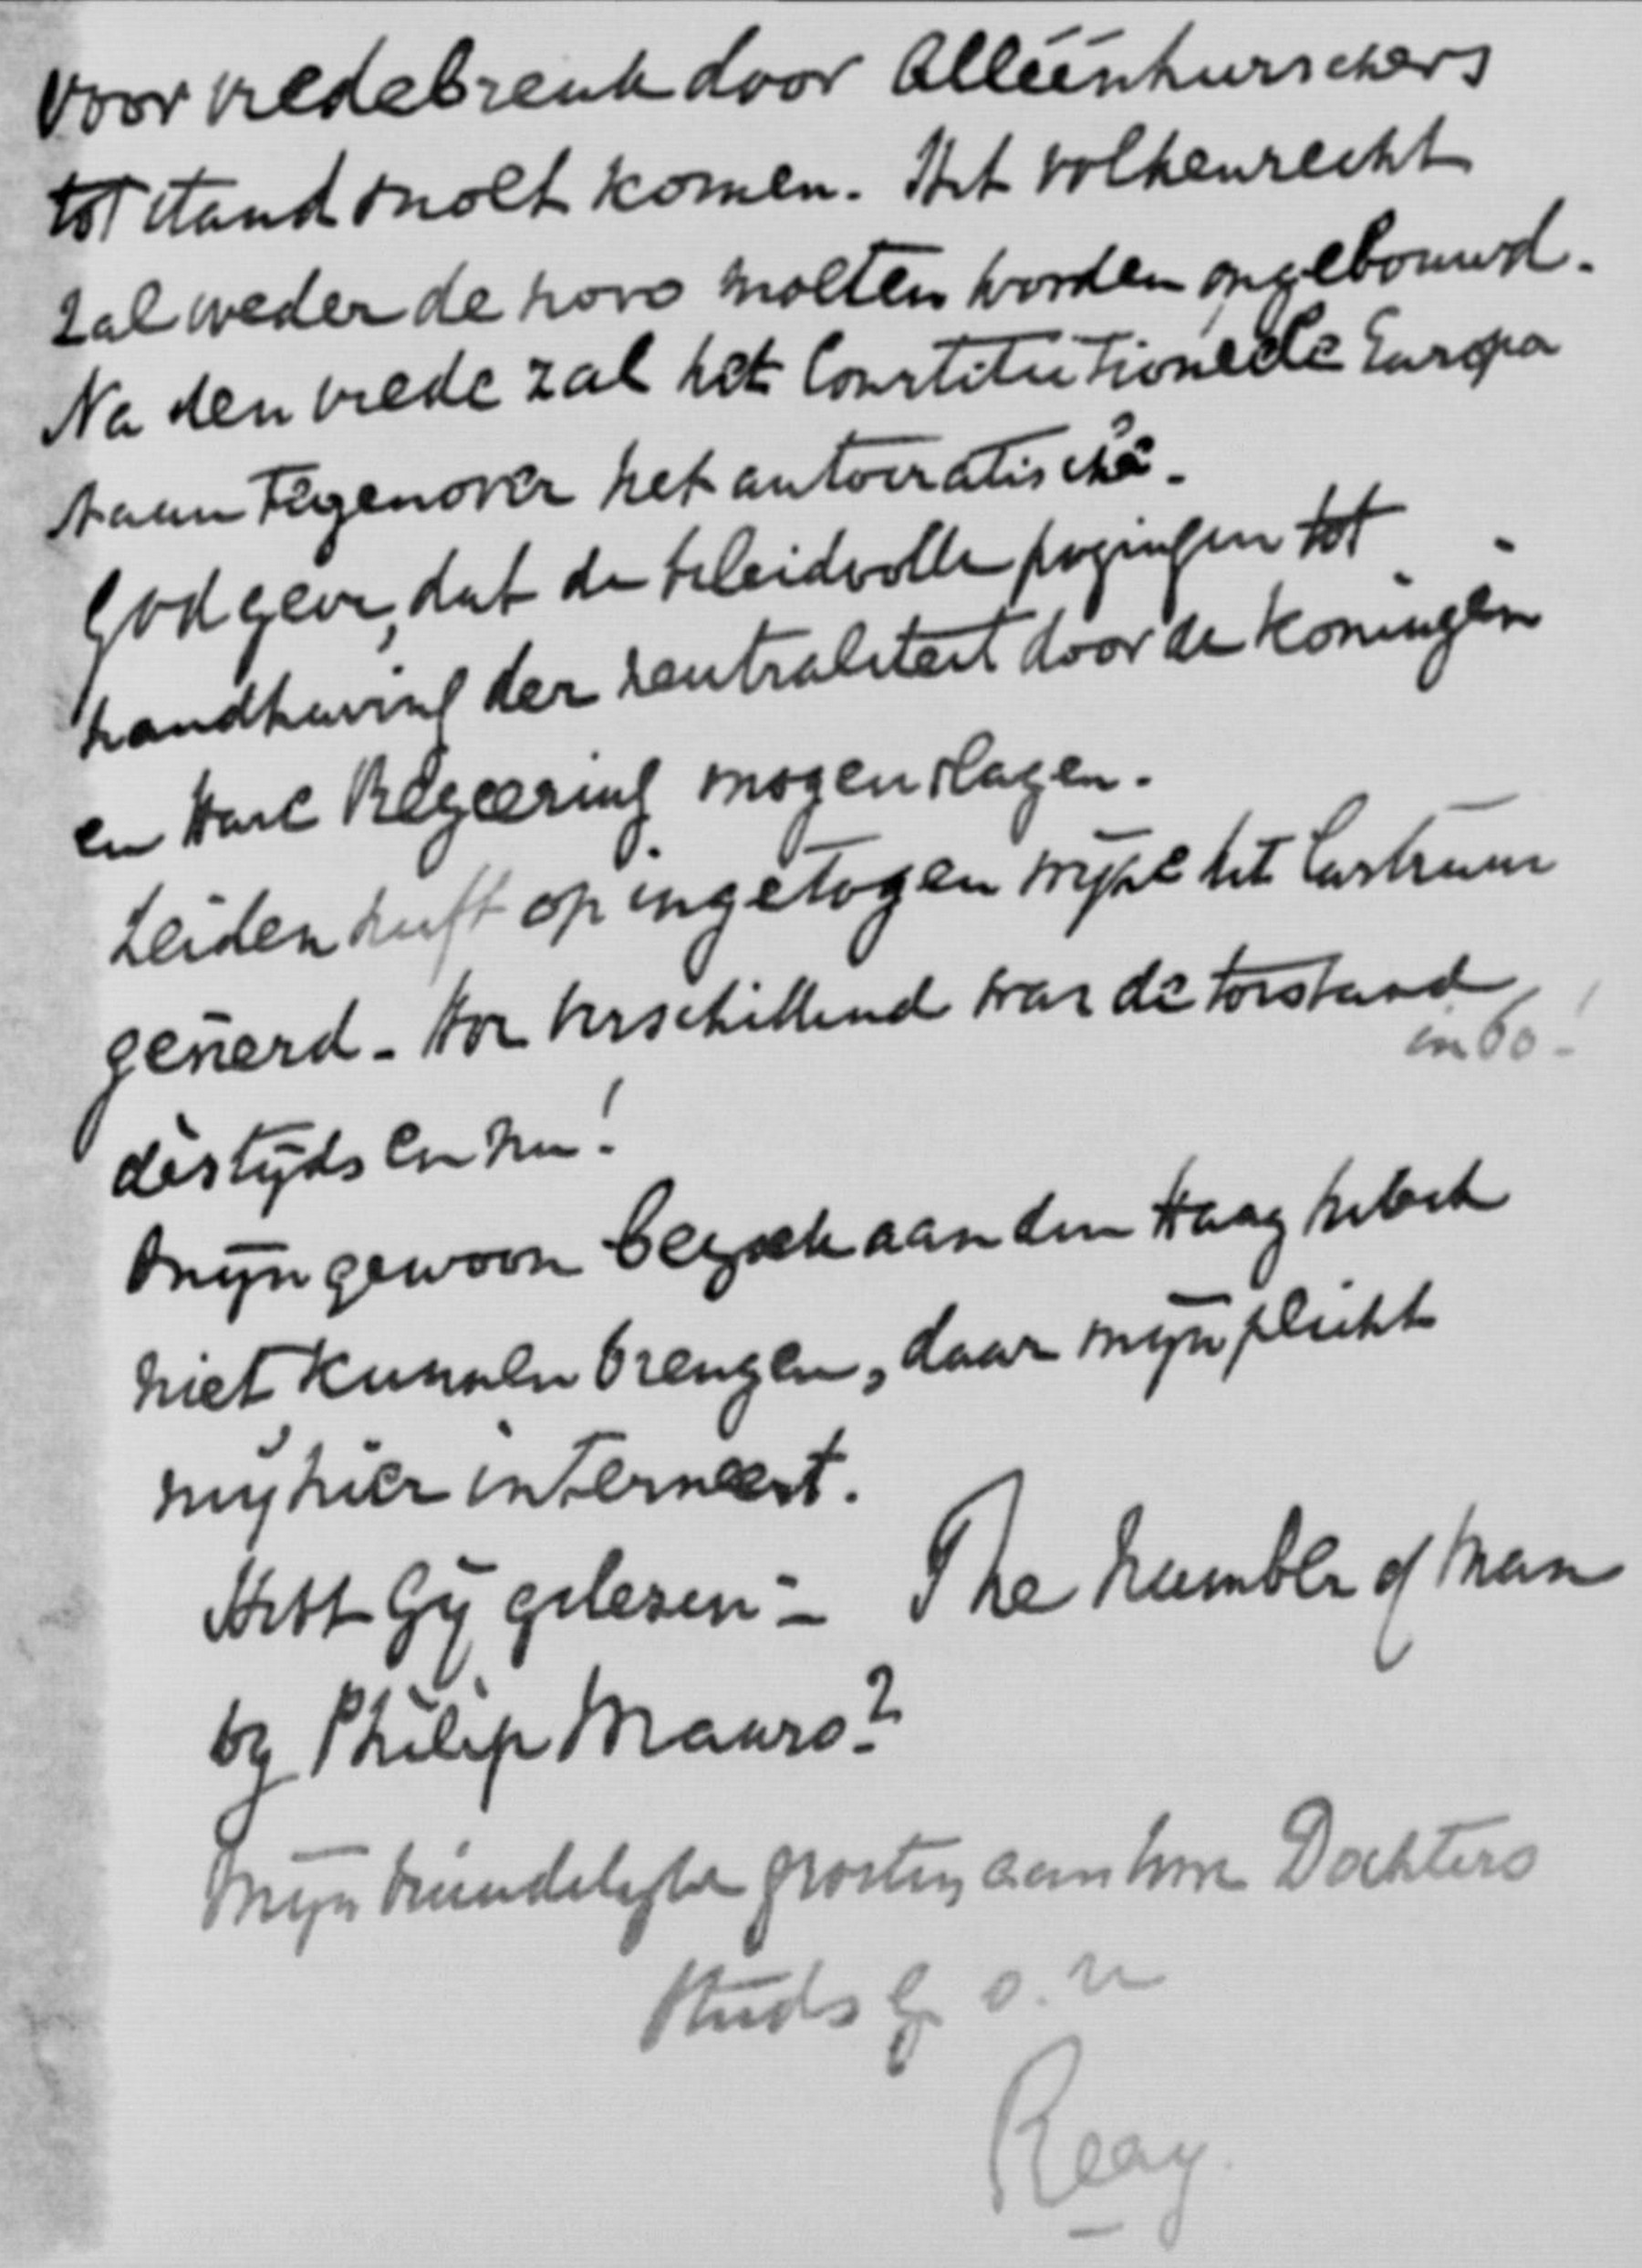 voor vredebreuk door Alléénheerschers
tot stand moet komen. Het volkenrecht
zal weder de novo moeten worden opgebouwd.
Na den vrede zal het Constitutioneele Europa
staan tegenover het autocratische.
God geve, dat de beleidvolle pogingen tot
handhaving der neutraliteit door de Koningin
en Hare Regeering mogen slagen.
Leiden heeft op ingetogen wijze het Lustrum
gevierd. Hoe verschillend was de toestand
in 60!
destijds en nu!
Mijn gewoon bezoek aan den Haag heb ik
niet kunnen brengen, daar mijn plicht
mij hier interneert.
Hebt Gij gelezen - The Number of Man
by Philip Mauro?
Mijn vriendelijke groeten aan Uwe Dochters
Steeds g. o. v.
Reay.